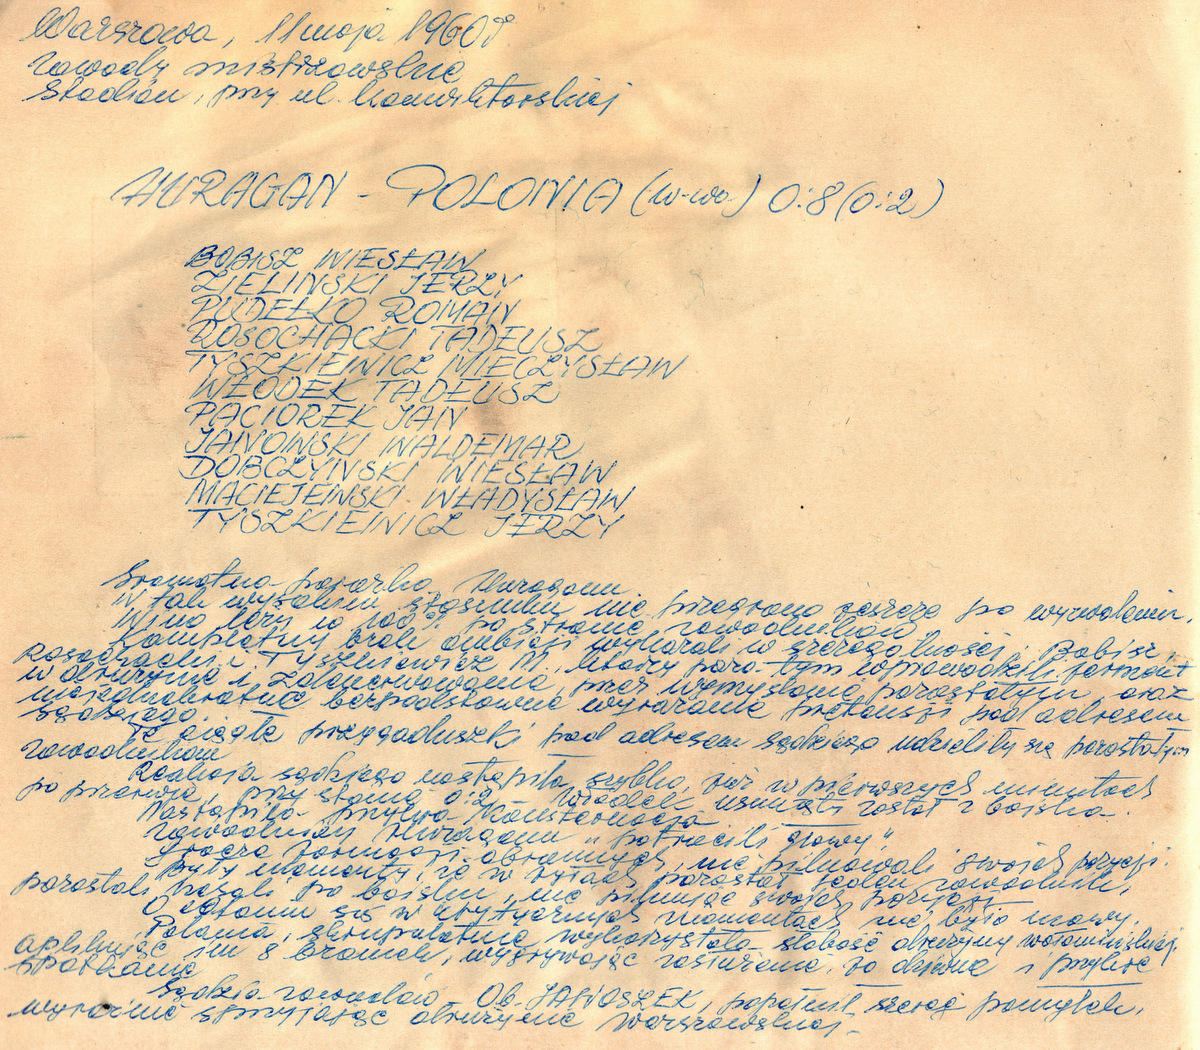 Warszawa, 11 maja 1960 r.
zawody mistrzowskie
Stadion, przy ul. Konwiktorskiej
HURAGAN - POLONIA (W-wa) 0:8 (0:2)
BOBISZ WIESŁAW
ZIELINSKI JERZY
PUDEŁKO ROMAN
ROSOCHACKI TADEUSZ
TYSZKIEWICZ MIECZYSŁAW
WŁODEK TADEUSZ
PACIOREK JAN
JANOWSKI WALDEMAR
DOBCZYŃSKI WIESŁAW
MACIEJEWSKI WŁADYSŁAW
TYSZKIEWICZ JERZY
Sromotna porażka Huraganu.
W tak wysokim stosunku nie przegrano jeszcze po wyzwoleniu.
Wina leży w 100% po stronie zawodników.
Kompletny brak ambicji wykazali w szczególności: Bobisz,
Rosochacki i Tyszkiewicz M., którzy poza tym wprowadzili ferment
w drużynie i zdenerwowanie, przez wymyślanie pozostałym, oraz
niejednokrotne bezpodstawne wyrażanie pretensji pod adresem
sędziego.
Te ciągłe przygaduszki pod adresem sędziego udzieliły się pozostałym
zawodnikom
Reakcja sędziego nastąpiła szybko, już w pierwszych minutach
po przerwie, przy stanie 0:2 - Włodek usunięty został z boiska.
Nastąpiła przykra konsternacja
zawodnicy Huraganu "potracili głowy"
Gracze formacji obronnych, nie pilnowali swojej pozycji.
Były momenty, że w tyłach pozostał jeden zawodnik,
pozostali hasali po boisku, nie pilnując swojej pozycji.
O ... się w krytycznych momentach nie było mowy.
Polonia, skrupulatnie wykorzystała słabość drużyny wołomińskiej
aplikując im 8 bramek, wygrywając zasłużenie, to dziwne i przykre
spotkanie
Sędzia zawodów - Ob. JANOSZEK, popełnił szereg pomyłek,
wyraźnie sprzyjając drużynie warszawskiej.